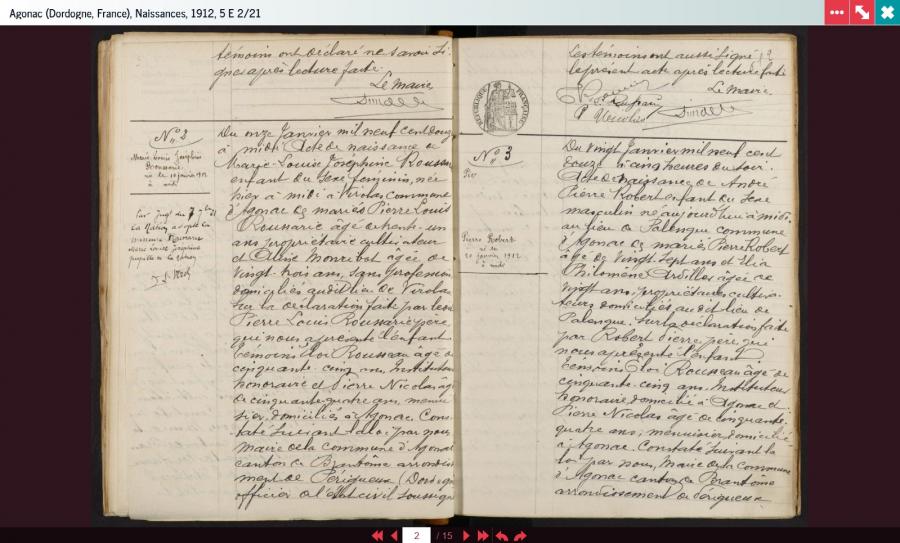 Agonac (Dordogne, France), Naissances, 1912, 5 E 2/21
témoins ont déclaré ne savoir si-
gner après lecture faite.
Le Maire
N° 2
Du onze Janvier mil neuf cent douze
à midi. Acte de naissance de
Marie-Louise Joséphine Roussarie
enfant du sexe féminin, née
hier à midi à Virolas commune
d'Agonac des mariés Pierre Louis
Roussarie âgé de trente-un
ans propriétaire cultivateur
et âgée de
vingt-trois ans, sans profession
domiciliés audit lieu de Virolas
Sur la déclaration faite par
Pierre Louis Roussarie père
qui nous a présenté l'enfant
témoins Eloi Rousseau âgé de
cinquante-cinq ans, Instituteur
honoraire et Pierre Nicolas âgé
de cinquante-quatre ans, menui-
sier, domiciliés à Agonac. Cons-
taté suivant la loi par nous
Maire de la commune d'Agonac
canton de Brantôme arrondisse-
ment de Périgueux (Dordogne)
officier de l'état civil soussigné
Les témoins ont aussi signé
le présent acte après lecture faite
Le Maire
RÉPUBLIQUE FRANÇAISE
N° 3
Pierre Robert
né le
20 janvier 1912
à midi
Du vingt Janvier mil neuf cent
douze à cinq heures du soir.
Acte de naissance de André
Pierre Robert enfant du sexe
masculin né aujourd'hui à midi
au lieu de Palengue commune
d'Agonac des mariés Pierre Robert
âgé de vingt-sept ans et
Philomène Ardilles âgée de
vingt ans, propriétaires cultiva-
teurs domiciliés audit lieu de
Palengue. Sur la déclaration faite
par Robert Pierre père qui
nous a présenté l'enfant
témoins Eloi Rousseau âgé de
cinquante-cinq ans, Instituteur
honoraire domicilié à Agonac et
Pierre Nicolas âgé de cinquante-
quatre ans, menuisier domicilié
à Agonac. Constaté suivant la
loi par nous, Maire de la commune
d'Agonac canton de Brantôme
arrondissement de Périgueux
2 / 15